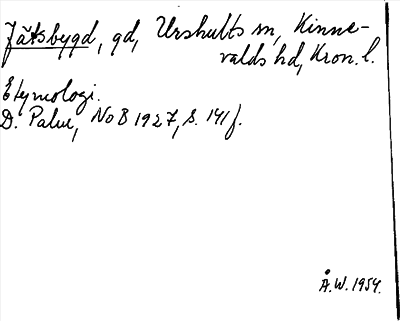 Jätsbygd, gd, Urshults sn, Kinne-
valds hd, Kron. l.
Etymologi.
D. Palm, NoB 1927, s. 141 f.
Å.W. 1954.